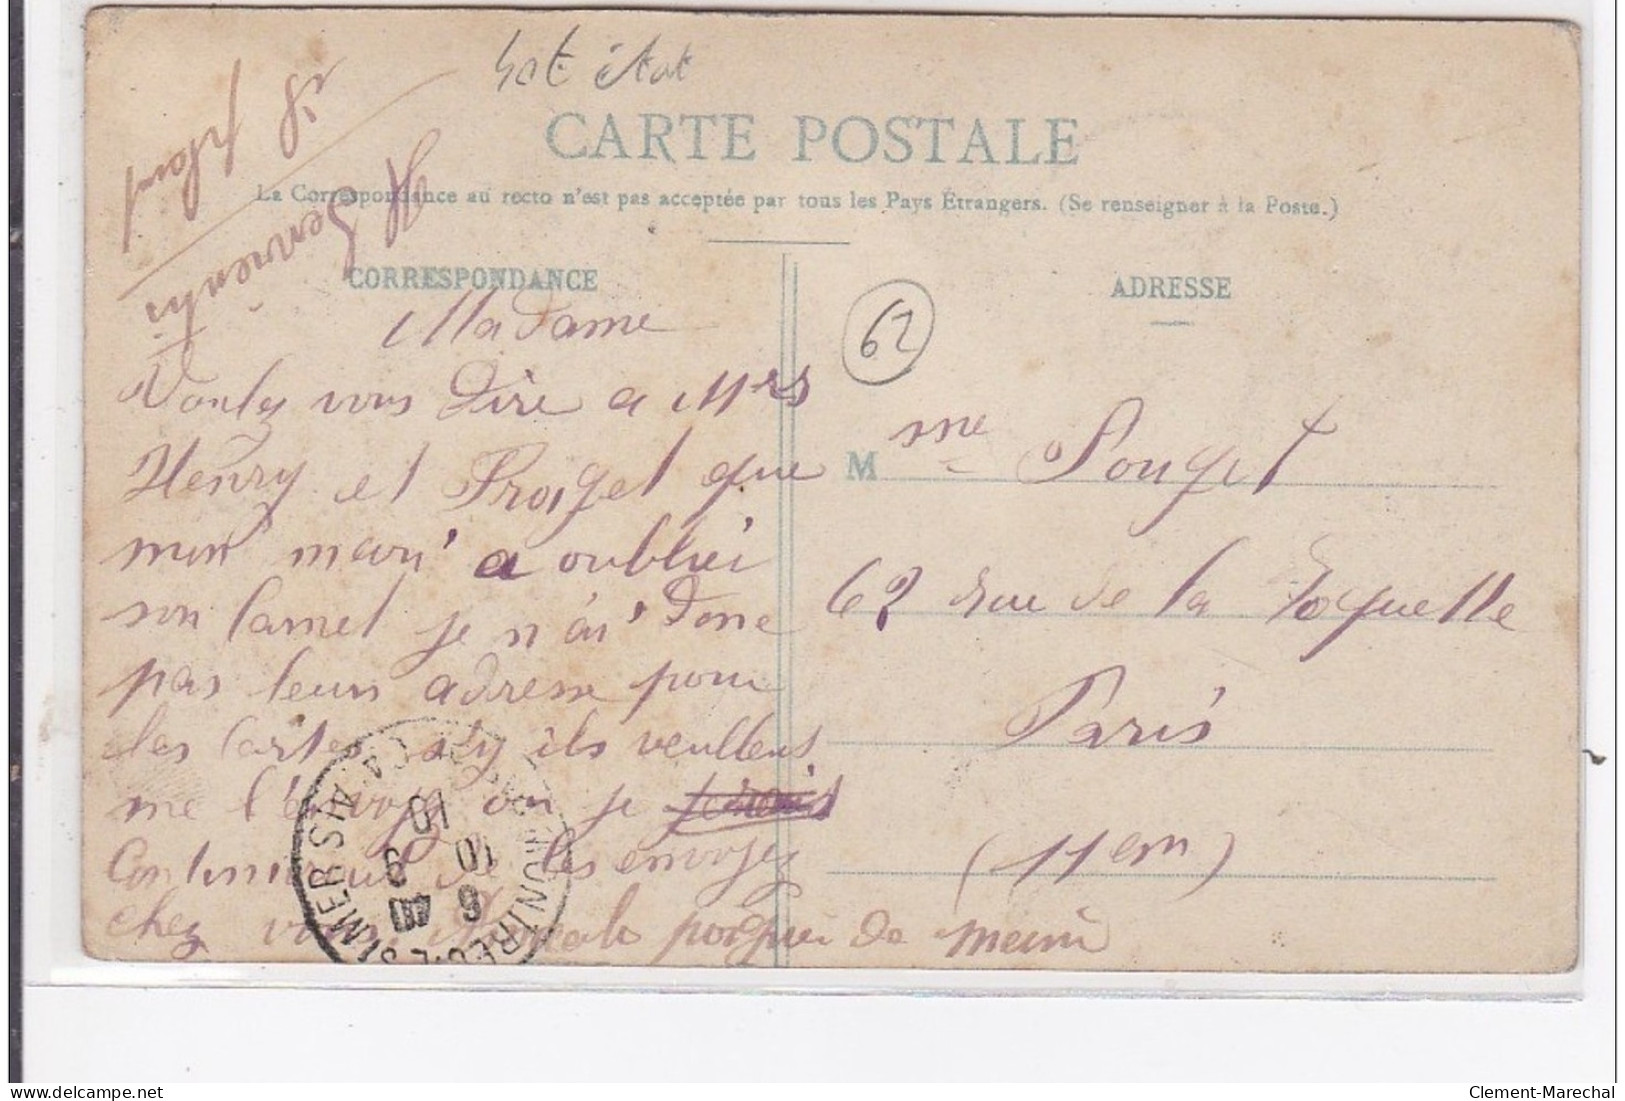 CARTE POSTALE
La Correspondance au recto n'est pas acceptée par tous les Pays Étrangers. (Se renseigner à la Poste.)
CORRESPONDANCE
Madame
Voulez vous dire a Mrs
Henry et Proget que
mon mari a oubliei
son carnet je n'ai donc
pas leurs adresse pour
les cartes s'y ils veullent
me l'envoyez ou je
continuerai de les envoyez
chez vous
ADRESSE
62
M me Pouget
62 rue de la Roquette
Paris
(11em)
Clement-Marechal